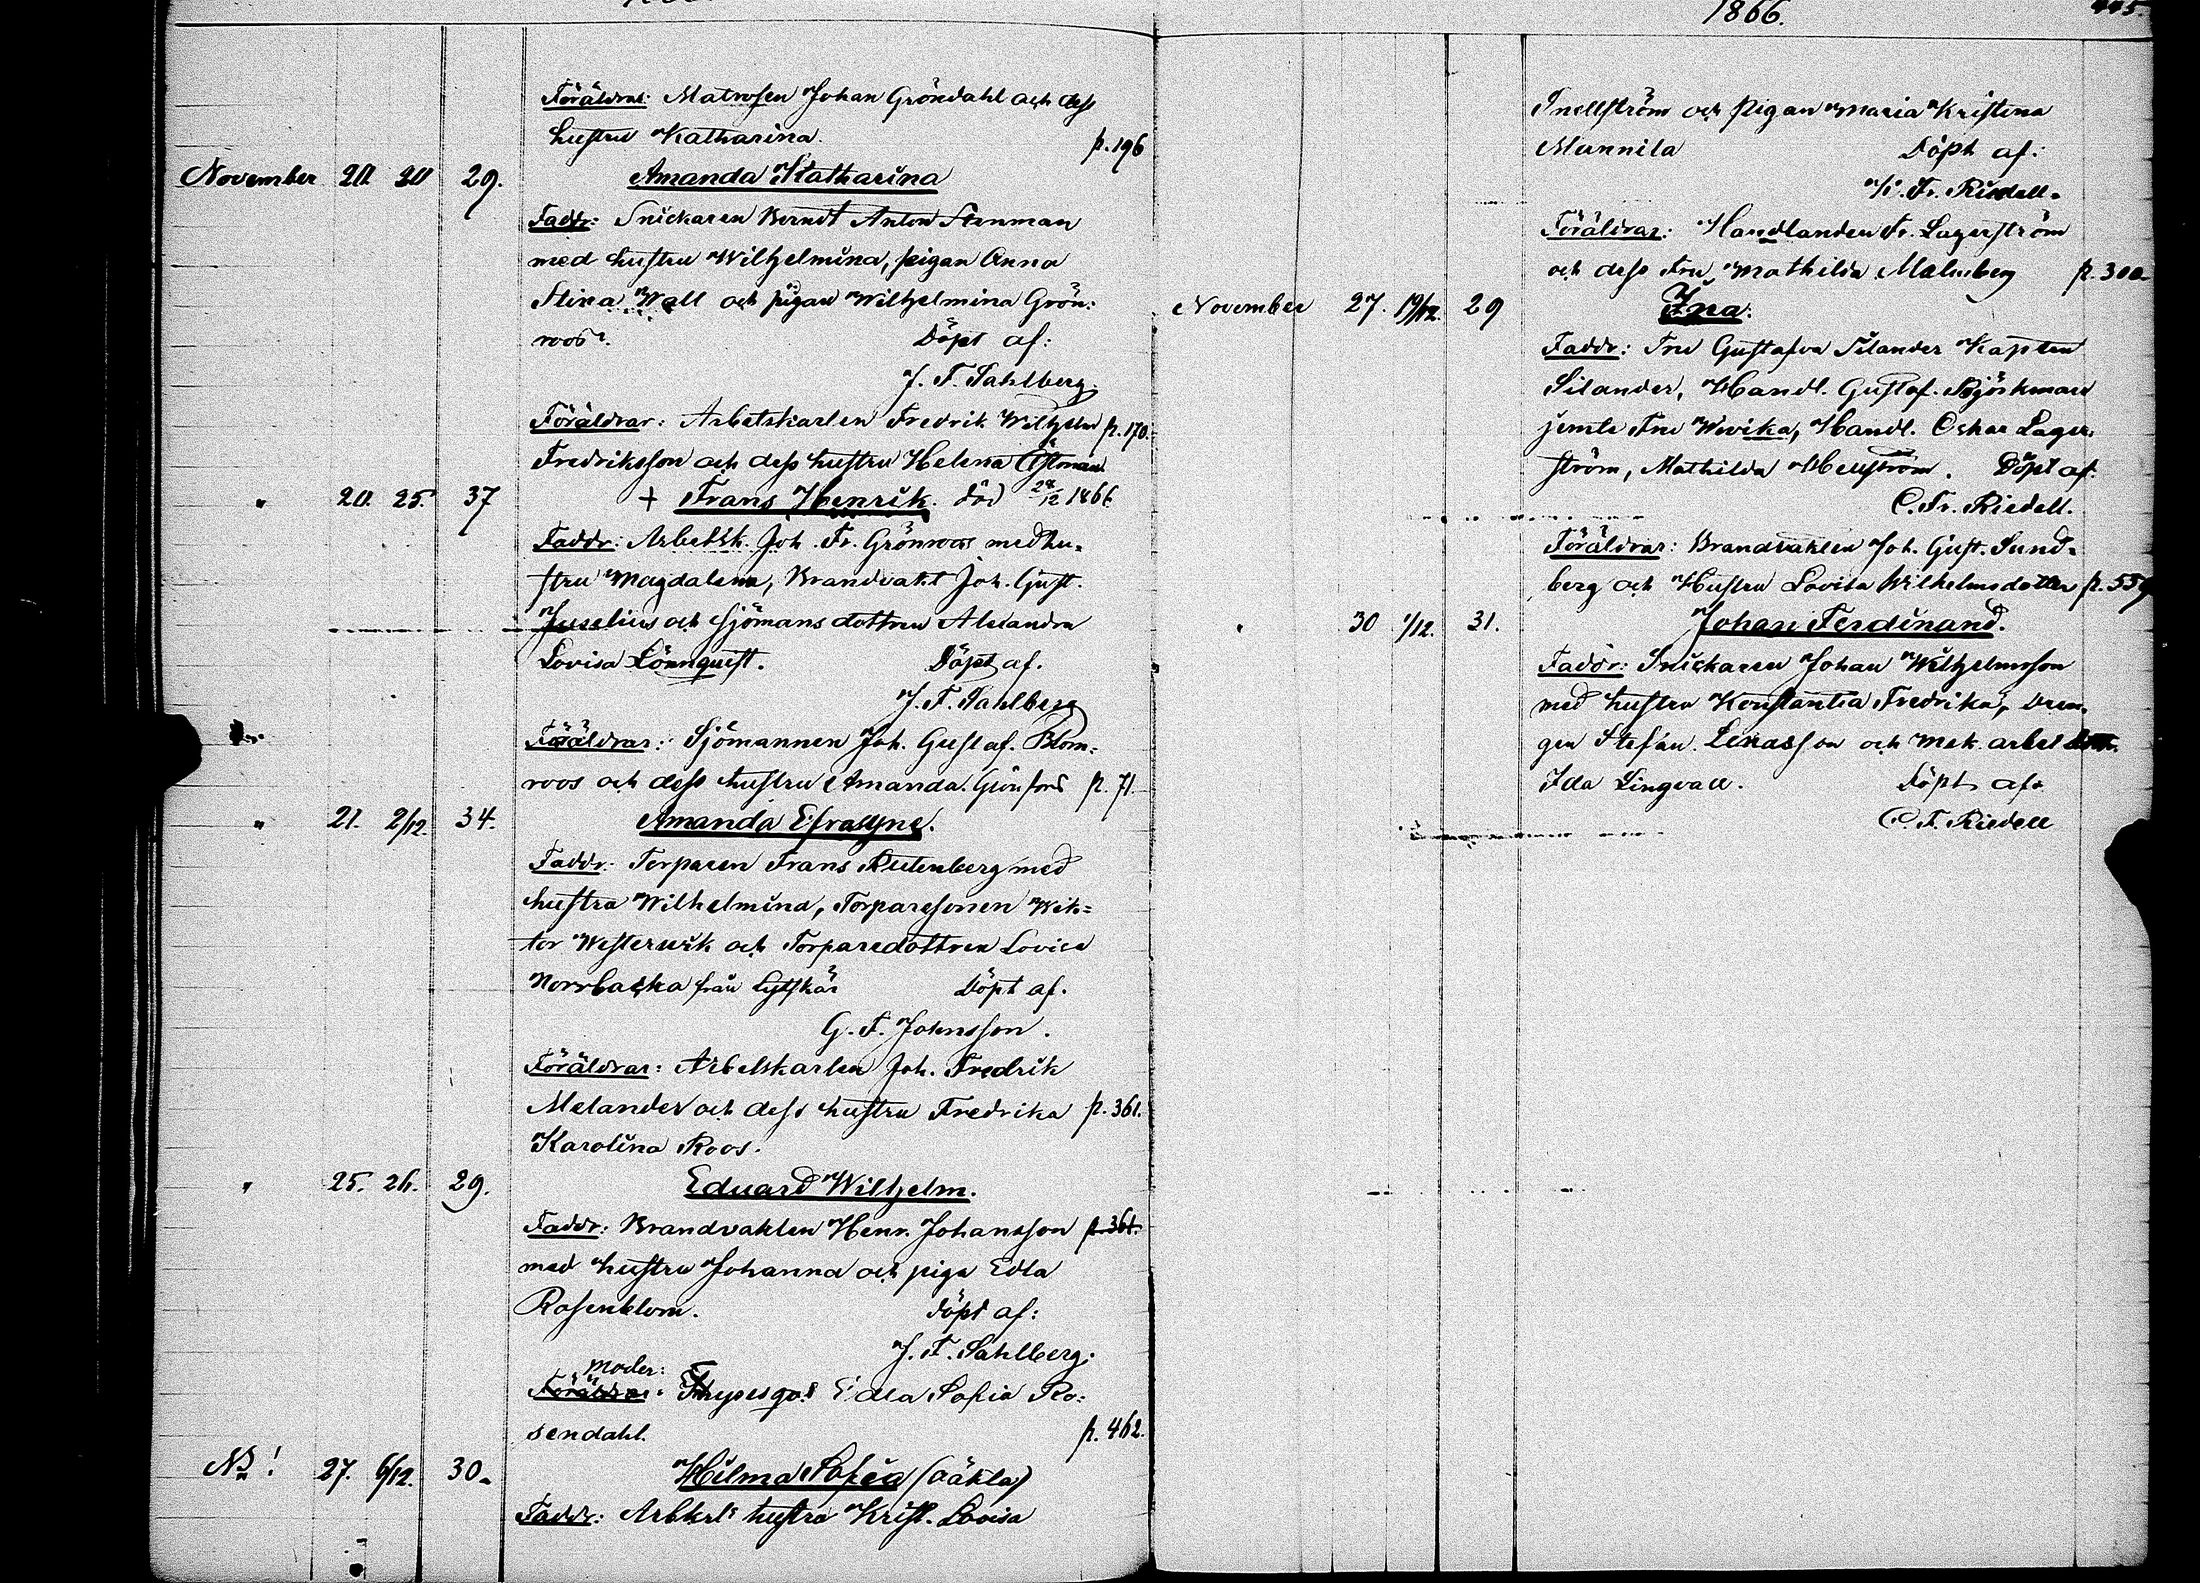 Föräldrar: Matrosen Johan Gröndahl och dess
hustru Katharina. p. 196
November 20. 20 29. Amanda Katharina
Faddr: Snickaren Berndt Anton Stenman
med hustru Wilhelmina, pigan Anna
Stina Wall och pigan Wilhelmina Grön:
roos. Döpt af:
J. F. Sahlberg.
Föräldrar: Arbetskarlen Fredrik Wilhelm p. 170.
Fredriksson och dess hustru Helena Östman
" 20. 25. 37 + Frans Henrik. död 28/12 1866.
Faddr: Arbetsk. Joh. Fr. Grönroos med hu-
stru Magdalena, Brandvakt Joh. Gust.
Juselius och Sjömansdottren Alexandra
Lovisa Lönnquist. Döpt af.
J. F. Sahlberg
Föräldrar: Sjömannen Joh. Gustaf. Blom-
roos och dess hustru Amanda. Grönfors p. 71.
" 21. 2/12. 34. Amanda Efrasyne.
Faddr: Torparen Frans Rutenberg med
hustru Wilhelmina, Torparesonen Wik=
tor Westerwik och Torparedottren Lovisa
Norrbacka från Lytskär Döpt af.
G. F. Johnsson.
Föräldrar: Arbetskarlen Joh. Fredrik
Melander och dess hustru Fredrika p. 361.
Karolina Roos.
" 25. 26. 29. Eduard Wilhelm.
Faddr: Brandvakten Henr. Johansson p. 361.
med hustru Johanna och piga Edla
Rosenblom. Döpt af:
J. F. Sahlberg.
Moder:
Föräldrar: Edla Sofia Ro:
sendahl. p. 462.
NB! 27. 6/12. 30. Hilma Sofia (oäkta)
Faddr: Arbkrls hustru Krist. Lovisa
1866. 445.
Snellström och pigan Maria Kristina
Mannila Döpt af:
Fr. Riedell.
Föräldrar: Handlanden Fr. Lagerström
och dess Fru Mathilda Malmberg p. 300.
November 27. 19/12. 29 Ina.
Faddr: Fru Gustafva Silander Kapten
Silander, Handl. Gustaf. Björkman
jemte Fru Wivika, Handl. Oskar Lager-
ström, Mathilda Döpt af.
C. Fr. Riedell.
Föräldrar: Brandvakten Joh. Gust. Sund-
berg och Hustru Lovisa Wilhelmsdotter p. 559
" 30 1/12. 31. Johan Ferdinand.
Faddr: Snickaren Johan Wilhelmsson
med hustru Konstantia Fredrika, Dren-
gen Stefan. Lukasson och Mek. arbet
Ida Lingvall. Döpt af:
C. F. Riedell